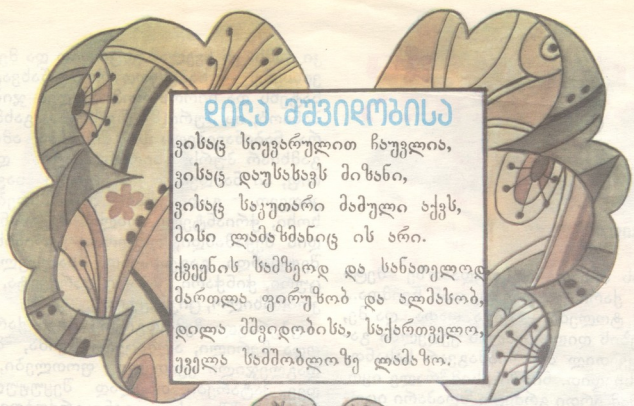 დილა მშვიდობისა
ვისაც სიყვარულით ჩაუვლია,
ვისაც დაუსახავს მიზანი,
ვისაც საკუთარი მამული აქვს,
მისი ლამაზმანიც ის არი.
ქვეყნის სამზეოდ და სანათელოდ
მართლა ფირუზობ და ალმასობ,
დილა მშვიდობისა, საქართველო,
ყველა სამშობლოზე ლამაზო.